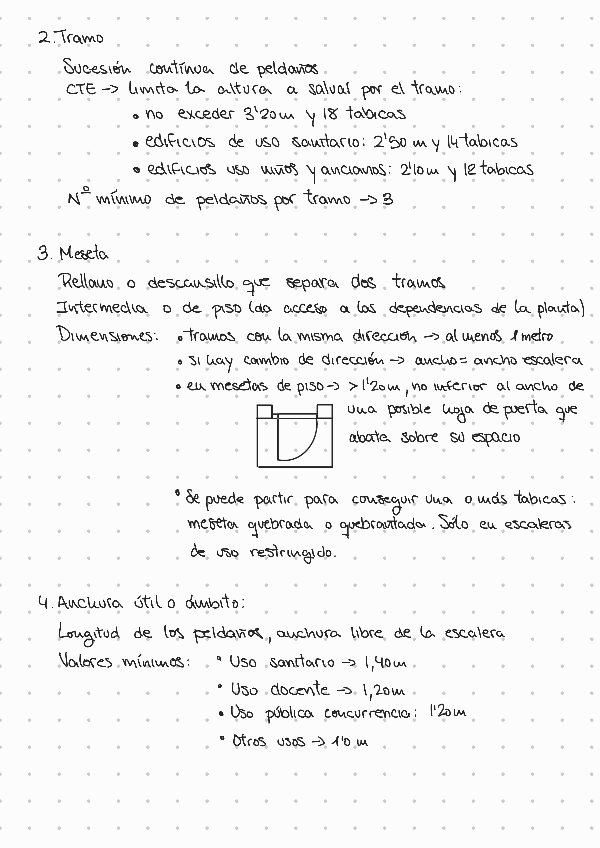 2. Tramo
Sucesión contínua de peldaños
CTE -> limita la altura a salvar por el tramo:
• no exceder 3'20m y 18 tabicas
• edificios de uso sanitario: 2'50 m y 14 tabicas
• edificios uso niños y ancianos: 2'10m y 12 tabicas
Nº mínimo de peldaños por tramo -> 3
3. Meseta
Rellano o descansillo que separa dos tramos
Intermedia o de piso (da acceso a las dependencias de la planta)
Dimensiones: • tramos con la misma dirección -> al menos 1 metro
• si hay cambio de dirección -> ancho = ancho escalera
• en mesetas de piso -> > 1'20m, no inferior al ancho de
una posible hoja de puerta que
abata sobre su espacio
• Se puede partir para conseguir una o más tabicas:
meseta quebrada o quebrantada. Sólo en escaleras
de uso restringido.
4. Anchura útil o ámbito:
Longitud de los peldaños, anchura libre de la escalera
Valores mínimos: • Uso sanitario -> 1,40m
• Uso docente -> 1,20m
• Uso pública concurrencia: 1'20m
• Otros usos -> 1'0 m